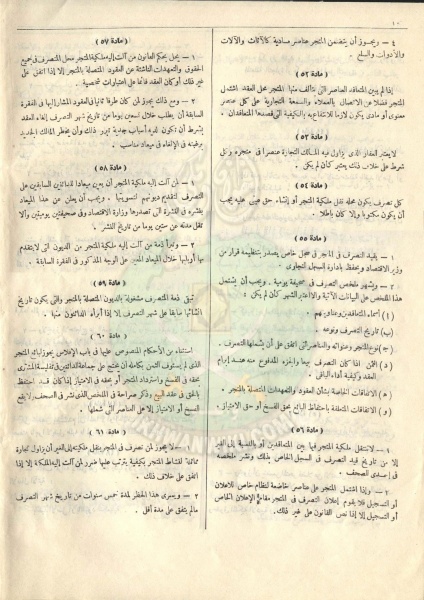 ١٠
٤ – ويجوز أن يتضمن المتجر عناصر مادية كالأثاث والآلات
والأدوات والسلع .
( مادة ٥٢ )
إذا لم يبين المتعاقد العناصر التى يتألف منها المتجر محل العقد اشتمل
المتجر فضلا عن الاتصال بالعملاء والسمعة التجارية على كل عنصر
معنوى أو مادى يكون لازما للانتفاع به بالكيفية التى قصدها المتعاقدان .
( مادة ٥٣ )
لا يعتبر العقار الذى يزاول فيه المالك التجارة عنصرا فى متجره وكل
شرط على خلاف ذلك يعتبر كأن لم يكن .
( مادة ٥٤ )
كل تصرف يكون محله نقل ملكية المتجر أو إنشاء حق عينى عليه يجب
أن يكون مكتوبا وإلا كان باطلا .
( مادة ٥٥ )
١ – يقيد التصرف فى المتجر فى سجل خاص يصدر بتنظيمه قرار من
وزير الاقتصاد ويحفظ بإدارة السجل التجارى .
٢ – ويشهر ملخص التصرف فى صحيفة يومية . ويجب أن يشتمل
هذا الملخص على البيانات الآتية وإلا اعتبر الشهر كأن لم يكن :
( أ ) أسماء المتعاقدين وعناوينهم .
(ب) تاريخ التصرف ونوعه .
(ج) نوع المتجر وعنوانه والعناصر التى اتفق على أن يشملها التصرف .
(د) الثمن إذا كان التصرف بيعا والجزء المدفوع منه عند إبرام
العقد وكيفية أداء الباقى .
(هـ) الاتفاقات الخاصة بشأن العقود والتعهدات المتصلة بالمتجر .
(و) الاتفاقات المتعلقة باحتفاظ البائع بحق الفسخ أو حق الامتياز .
( مادة ٥٦ )
١ – لا تنتقل ملكية المتجر فيما بين المتعاقدين أو بالنسبة إلى الغير
إلا من تاريخ قيد التصرف فى السجل الخاص بذلك ونشر ملخصه
فى إحدى الصحف .
٢ – وإذا اشتمل المتجر على عناصر خاضعة لنظام خاص للإعلان
أو التسجيل فلا يقوم إعلان التصرف فى المتجر مقام الإعلان الخاص
أو التسجيل إلا إذا نص القانون على غير ذلك .
( مادة ٥٧ )
١ – يحل بحكم القانون من آلت إليه ملكية المتجر محل المتصرف فى جميع
الحقوق والتعهدات الناشئة عن العقود المتصلة بالمتجر إلا إذا اتفق على
غير ذلك أو كان العقد قائما على اعتبارات شخصية .
٢ – ومع ذلك يجوز لمن كان طرفا ثانيا فى العقود المشار إليها فى الفقرة
السابقة أن يطلب خلال تسعين يوما من تاريخ شهر التصرف إلغاء العقد
بشرط أن تكون لديه أسباب جدية تبرر ذلك وأن يخطر المالك الجديد
برغبته فى الإلغاء فى ميعاد مناسب .
( مادة ٥٨ )
١ – لمن آلت إليه ملكية المتجر أن يعين ميعادا للدائنين السابقين على
التصرف لتقديم ديونهم لتسويتها . ويجب أن يعلن عن هذا الميعاد
بنشره فى النشرة التى تصدرها وزارة الاقتصاد وفى صحيفتين يوميتين وألا
تقل مدته عن ستين يوما من تاريخ النشر .
٢ – وتبرأ ذمة من آلت إليه ملكية المتجر من الديون التى لا يتقدم
بها أربابها خلال الميعاد المبين على الوجه المذكور فى الفقرة السابقة .
( مادة ٥٩ )
تبقى ذمة المتصرف مشغولة بالديون المتصلة بالمتجر والتى يكون تاريخ
إنشائها سابقا على شهر التصرف إلا إذا أبرأه الدائنون منها .
( مادة ٦٠ )
استثناء من الأحكام المنصوص عليها فى باب الإفلاس يجوز لبائع المتجر
الذى لم يستوف الثمن بكامله أن يحتج على جماعة الدائنين فى تفليسة المشترى
بحقه فى الفسخ واسترداد المتجر أو بحقه فى الامتياز إذا كان قد احتفظ
بالحق فى عقد البيع وذكر صراحة فى الملخص الذى نشر فى الصحف . ولا يقع
الفسخ أو الامتياز إلا على العناصر التى شملها .
( مادة ٦١ )
١ – لا يجوز لمن تصرف فى المتجر بنقل ملكيته إلى الغير أن يزاول تجارة
مماثلة لنشاط المتجر بكيفية يترتب عليها ضرر لمن آلت إليه الملكية إلا إذا
اتفق على خلاف ذلك .
٢ – ويسرى هذا الحظر لمدة خمس سنوات من تاريخ شهر التصرف
ما لم يتفق على مدة أقل .